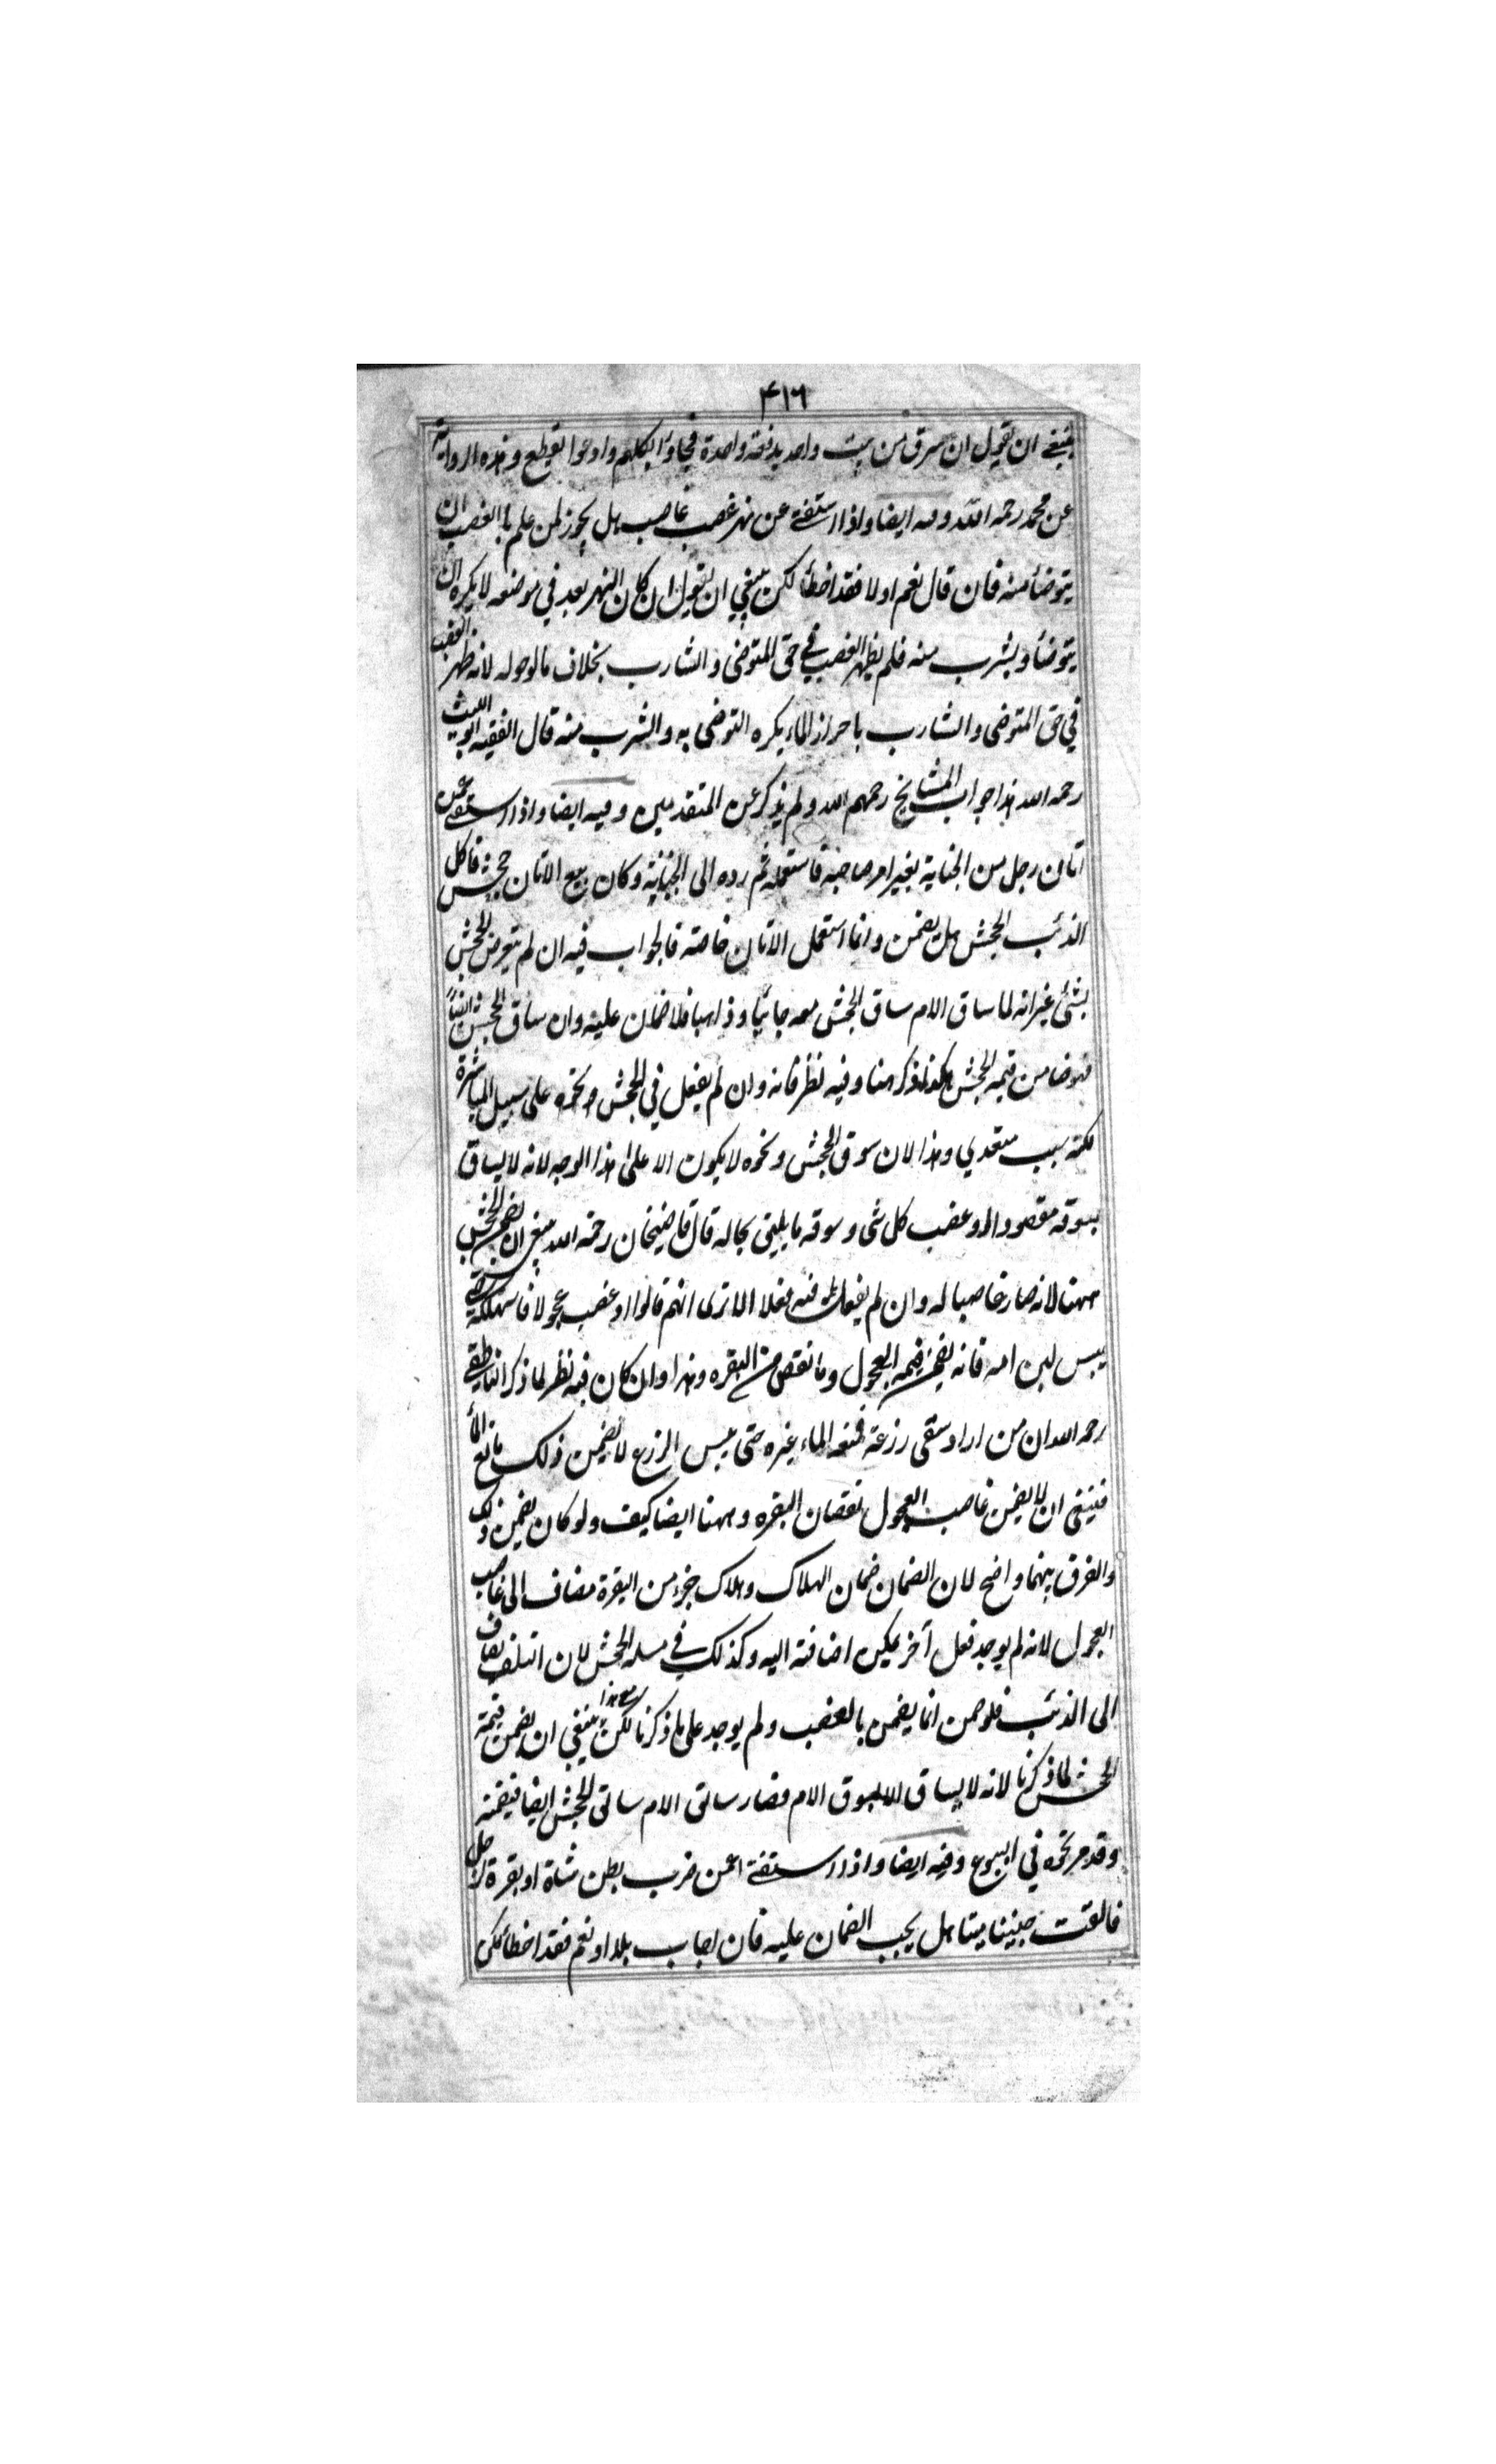 ٤١٦
ينبغي ان يقول ان سرق من بيت واحد بدفعة واحدة فجاؤا بكلهم وادعوا يقطع وهذه الرواية
عن محمد رحمه الله وفيه ايضا واذا استفتى عن نهر غصب غاصب هل يجوز لمن علم بالغصب ان
يتوضأ منه فان قال نعم اولا فقد اخطأ لكن ينبغي ان يقول ان كان النهر بعد في موضعه لا يكره ان
يتوضأ ويشرب منه فلم يظهر الغصب في حق المتوضى والشارب بخلاف مالوحوله لانه ظهر الغصب
في حق المتوضى والشارب باحراز الماء يكره التوضى به والشرب منه قال الفقيه ابو الليث
رحمه الله هذا جواب المشايخ رحمهم الله ولم يذكر عن المتقدمين وفيه ايضا واذا استفتى عمن
اتان رجل من الجناية بغير امر صاحبه فاستعمله ثم رده الى الجناية وكان بيع الاتان جحش فاكل
الذئب الجحش هل يضمن وانما استعمل الاتان خاصته فالجواب فيه ان لم يتعرض للجحش
بشئ غير انه لما ساق الام ساق الجحش معه جائيا وذاهبا فلا ضمان عليه وان ساق الجحش ايضاً
فهو ضامن قيمه الجحش هكذا ذكر هنا وفيه نظر فانه وان لم يفعل في الجحش ونحوه على سبيل المباشرة
لكنه سبب متعدي وهذا لان سوق الجحش ونحوه لا يكون الا على هذا الوجه لانه لا يساق
بسوقه مقصودا وغصب كل شى وسوقه ما يليق بحاله قال قاضيخان رحمه الله ينبغي ان يضمن الجحش
ههنا لانه صار غاصبا له وان لم يفعل فيه فعلا الا ترى انهم قالوا لو غصب عجولا فاستهلكه حتى
يبس لبن امه فانه يضمن قيمه العجول وما نقص من البقره وهذا وان كان فيه نظر لما ذكر الناطقي
رحمه الله ان من اراد سقى زرعه فمنعه الماء غيره حتى يبس الزرع لا يضمن ذلك مانع الماء
فينبغى ان لا يضمن غاصب العجول نقصان البقره وههنا ايضا كيف ولو كان يضمن ذلك
والفرق بينهما واضح لان الضمان ضمان الهلاك وهلاك جزء من البقرة مضاف الى غاصب
العجول لانه لم يوجد فعل آخر يمكن اضافته اليه وكذلك في مسله الجحش لان التلف يضاف
الى الذئب فلو ضمن انما يضمن بالغصب ولم يوجد على ما ذكرنا لكن مع هذا ينبغي ان يضمن قيمة
الجحش لما ذكرنا لانه لا يساق الا بسوق الام فصار سائق الام سائق للجحش ايضا فيضمنه
وقد مر نحوه في البيوع وفيه ايضا واذا استفتى عمن ضرب بطن شاة او بقرة لرجل
فالقت جنينا ميتا هل يجب الضمان عليه فان اجاب بلا او نعم فقد اخطأ لكن